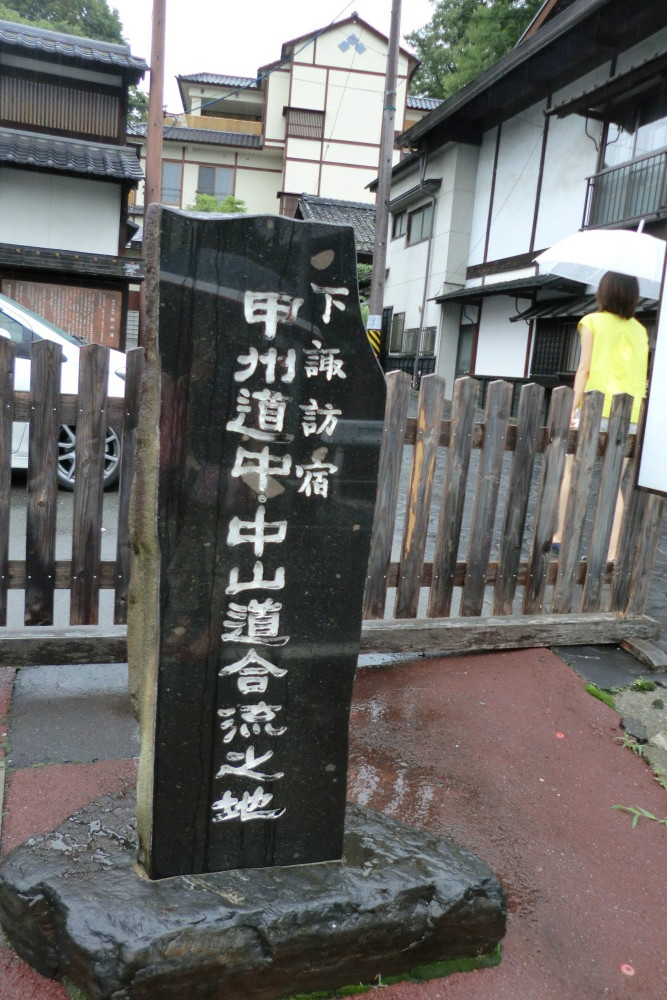 下諏訪宿
甲州道中・中山道合流之地